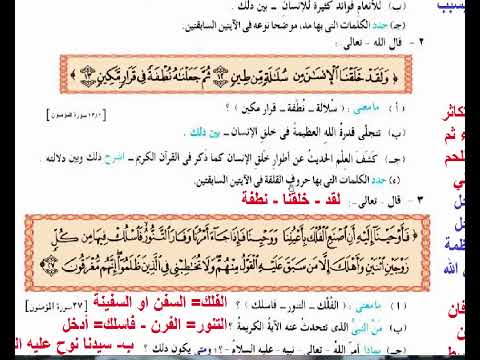 (ب) للأنعام فوائد كثيرة للإنسان ــ بين ذلك .
بسبب
(جـ) حدد الكلمات التى بها مد، موضحا نوعه فى الآيتين السابقتين.
٢ - قال الله - تعالى:
﴿ وَلَقَدْ خَلَقْنَا الْإِنسَانَ مِن سُلَالَةٍ مِّن طِينٍ ١٢ ثُمَّ جَعَلْنَاهُ نُطْفَةً فِي قَرَارٍ مَّكِينٍ ١٣ ﴾
(أ) ما معنى : سُلالة ــ نُطفة ــ قرار مكين ؟
[١٣،١٢ سورة المؤمنون]
كاثر
(ب) تتجلى قدرة الله العظيمة فى خلق الإنسان ــ بين ذلك .
ء ثم
(جـ) كشف العلم الحديث عن أطوار خلق الإنسان كما ذكر فى القرآن الكريم ــ اشرح ذلك وبين دلالته .
للحم
(د) حدد الكلمات التى بها حروف القلقة فى الآيتين السابقتين.
لقد - خلقنا - نطفة
٣ - قال - تعالى:
﴿ فَأَوْحَيْنَا إِلَيْهِ أَنِ اصْنَعِ الْفُلْكَ بِأَعْيُنِنَا وَوَحْيِنَا فَإِذَا جَاءَ أَمْرُنَا وَفَارَ التَّنُّورُ فَاسْلُكْ فِيهَا مِن كُلٍّ
زَوْجَيْنِ اثْنَيْنِ وَأَهْلَكَ إِلَّا مَن سَبَقَ عَلَيْهِ الْقَوْلُ مِنْهُمْ وَلَا تُخَاطِبْنِي فِي الَّذِينَ ظَلَمُوا إِنَّهُم مُّغْرَقُونَ ٢٧ ﴾
الله
(أ) ما معنى : الفُلْك - التنور - فاسلك ؟
الفلك= السفن او السفينة
[٢٧ سورة المؤمنون]
(ب) مَن النبىُّ الذى تتحدث عنه الآية الكريمة ؟
التنور= الفرن - فاسلك= أدخل
(جـ) بماذا أمر الله - تعالى - نبيه - عليه السلام - ؟ ومتى يكون ذلك ؟
ب- سيدنا نوح عليه